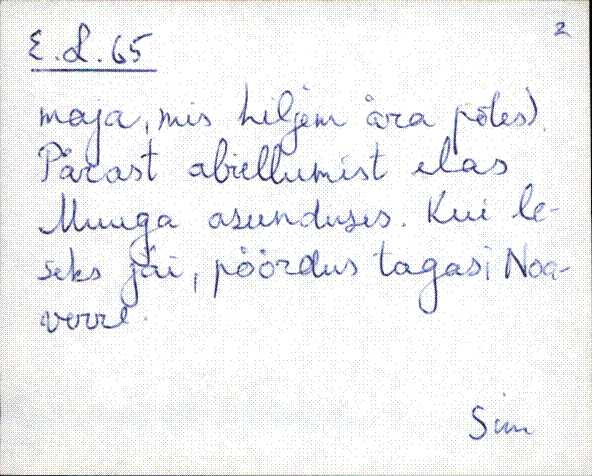 2
E.L.65
maja, mis hiljem ära põles).
Pärast abiellumist elas
Muuga asunduses. Kui le-
seks jäi, pöördus tagasi Noa-
verre.
Sim